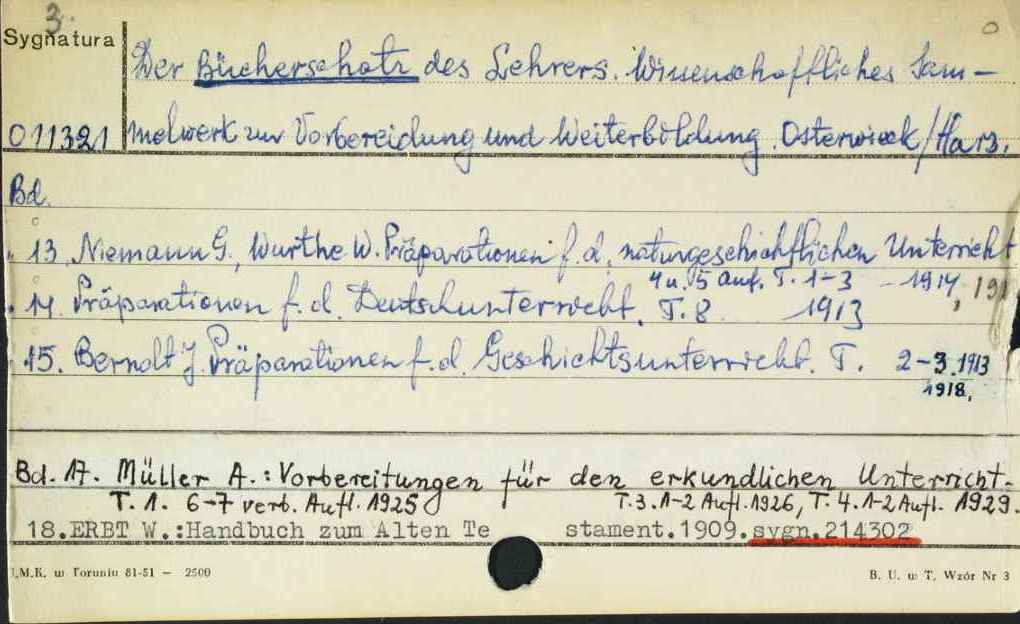 3.
Sygnatura
Der Bücherschatz des Lehrers. Wissenschaftliches Sam-
011321 melwerk zur Vorbereidung und Weiterbildung. Osterwieck/Harz.
Bd.
13. Niemann G., Wurthe W. Präparationen f. d. naturgeschichtlichen Unterricht
4 u. 5 Auf. T. 1-3 - 1914, 191
14. Präparationen f. d. Deutschunterricht. T. 8 1913
15. Berndt J. Präparationen f. d. Geschichtsunterricht. T. 2-3. 1913
1918,
Bd. 17. Müller A.: Vorbereitungen für den erkundlichen Unterricht.
T. 1. 6-7 verb. Aufl. 1925 T. 3. 1-2 Aufl. 1926, T. 4. 1-2 Aufl. 1929.
18. ERBT W.: Handbuch zum Alten Te stament. 1909. sygn. 214302
I.M.K. w Toruniu 81-51 — 2500 B. U. w T. Wzór Nr 3